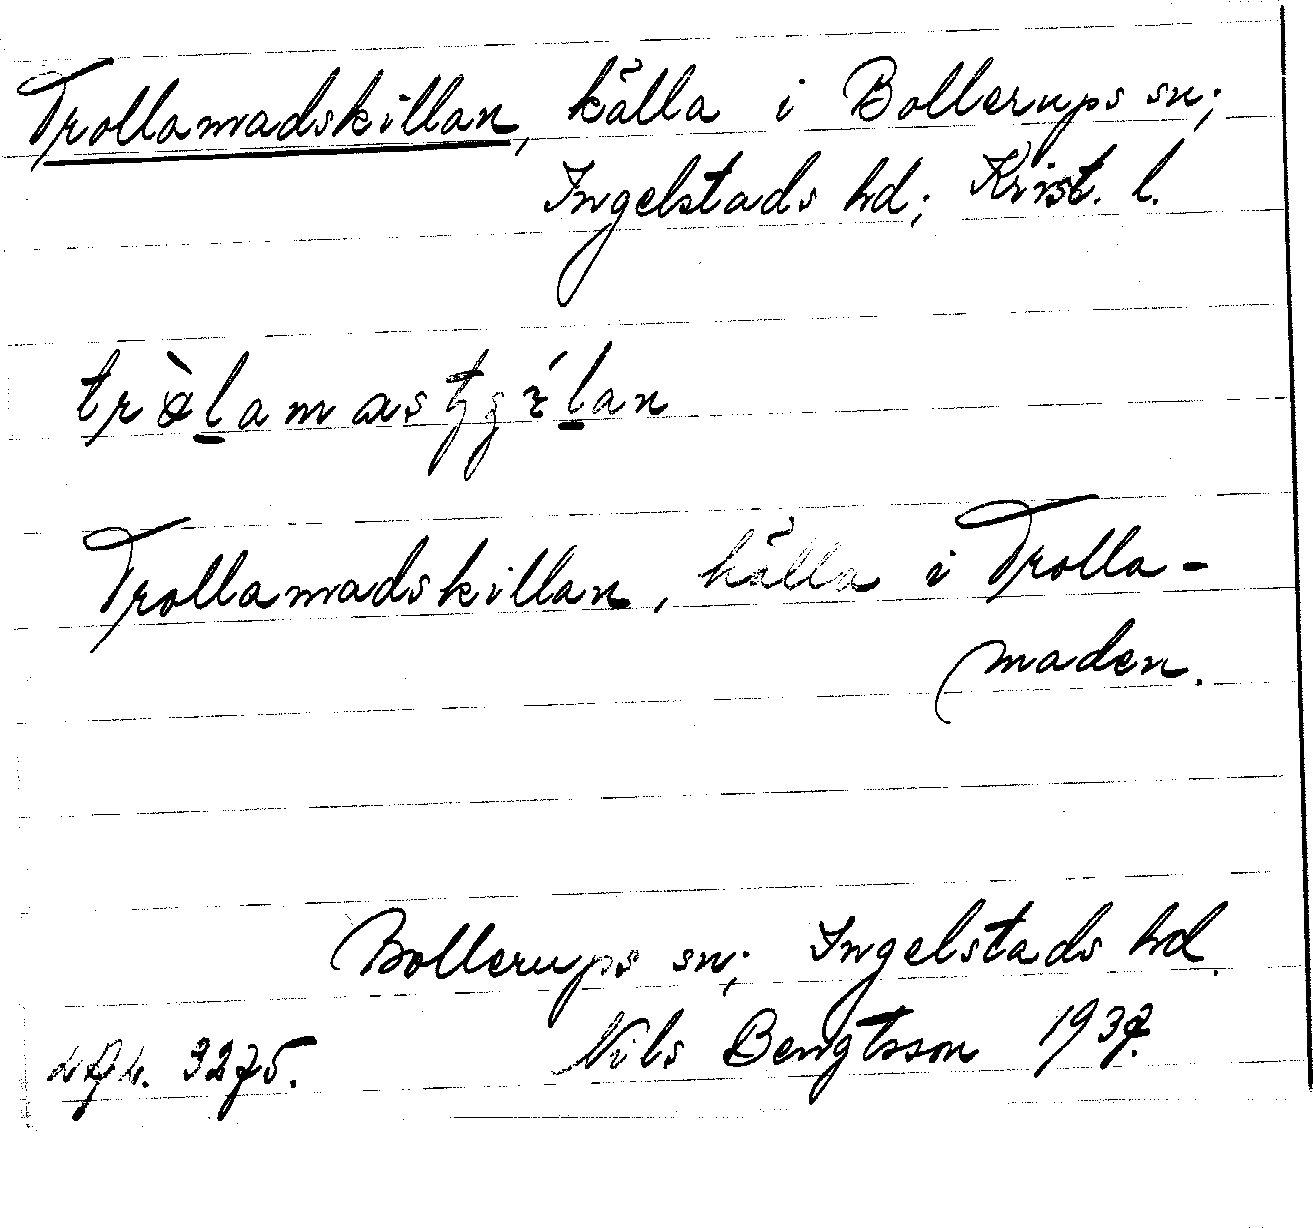 Trollamadskillan, källa i Bollerups sn;
Ingelstads hd; Krist. l.
Trollamadskillan, källa i Trolla-
maden.
Bollerups sn; Ingelstads hd.
3275. Nils Bengtsson 1937.